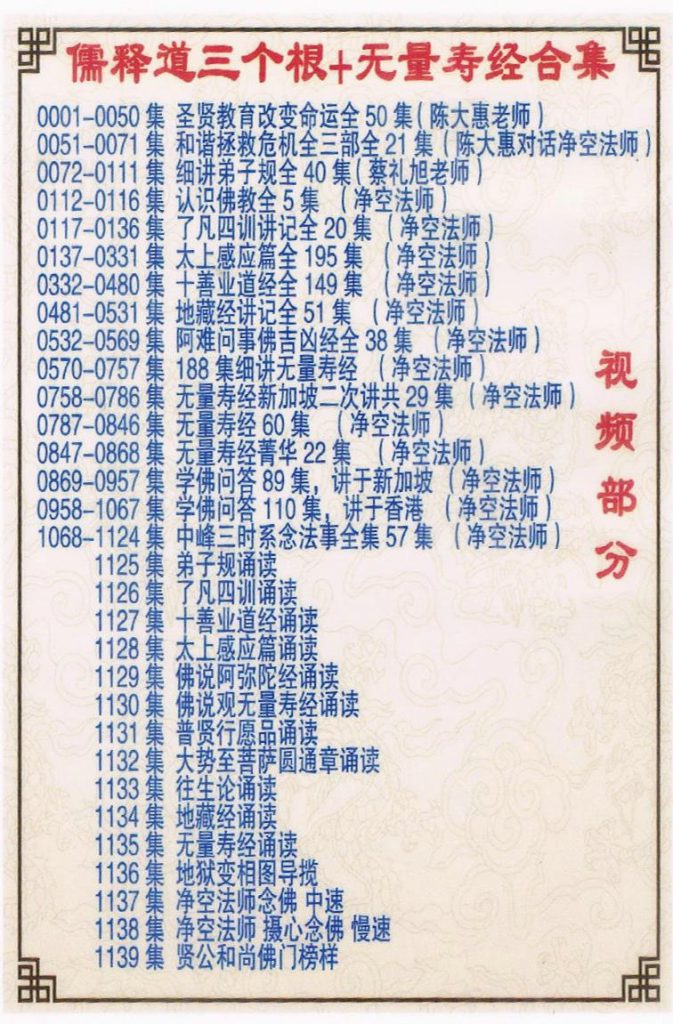 儒释道三个根+无量寿经合集
0001-0050 集 圣贤教育改变命运全 50 集(陈大惠老师)
0051-0071 集 和谐拯救危机全三部全 21 集 (陈大惠对话净空法师)
0072-0111 集 细讲弟子规全 40 集(蔡礼旭老师)
0112-0116 集 认识佛教全 5 集 (净空法师)
0117-0136 集 了凡四训讲记全 20 集 (净空法师)
0137-0331 集 太上感应篇全 195 集 (净空法师)
0332-0480 集 十善业道经全 149 集 (净空法师)
0481-0531 集 地藏经讲记全 51 集 (净空法师)
0532-0569 集 阿难问事佛吉凶经全 38 集 (净空法师)
0570-0757 集 188 集细讲无量寿经 (净空法师)
0758-0786 集 无量寿经新加坡二次讲共 29 集 (净空法师)
0787-0846 集 无量寿经 60 集 (净空法师)
0847-0868 集 无量寿经菁华 22 集 (净空法师)
0869-0957 集 学佛问答 89 集，讲于新加坡 (净空法师)
0958-1067 集 学佛问答 110 集，讲于香港 (净空法师)
1068-1124 集 中峰三时系念法事全集 57 集 (净空法师)
1125 集 弟子规诵读
1126 集 了凡四训诵读
1127 集 十善业道经诵读
1128 集 太上感应篇诵读
1129 集 佛说阿弥陀经诵读
1130 集 佛说观无量寿经诵读
1131 集 普贤行愿品诵读
1132 集 大势至菩萨圆通章诵读
1133 集 往生论诵读
1134 集 地藏经诵读
1135 集 无量寿经诵读
1136 集 地狱变相图导揽
1137 集 净空法师念佛 中速
1138 集 净空法师 摄心念佛 慢速
1139 集 贤公和尚佛门榜样
视频部分